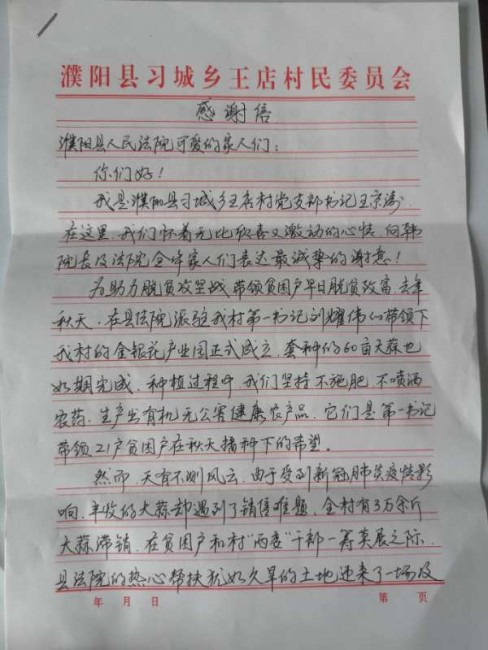 濮阳县习城乡王店村民委员会
感谢信
濮阳县人民法院可爱的家人们：
你们好！
我是濮阳县习城乡王店村党支部书记王京涛，
在这里，我们怀着无比欣喜又激动的心情，向韩
院长及法院全体家人们表达最诚挚的谢意！
为助力脱贫攻坚战，带领贫困户早日脱贫致富，去年
秋天，在县法院派驻我村第一书记刘耀伟的带领下
我村的金银花产业园正式成立，套种的60亩大蒜也
如期完成，种植过程中，我们坚持不施肥，不喷洒
农药，生产出有机无公害健康农产品，它们是第一书记
带领21户贫困户在秋天播种下的希望。
然而，天有不测风云，由于受到新冠肺炎疫情影
响，丰收的大蒜却遇到了销售难题，全村有3万余斤
大蒜滞销，在贫困户和村“两委”干部一筹莫展之际，
县法院的热心帮扶犹如久旱的土地迎来了一场及
年 月 日 第 页